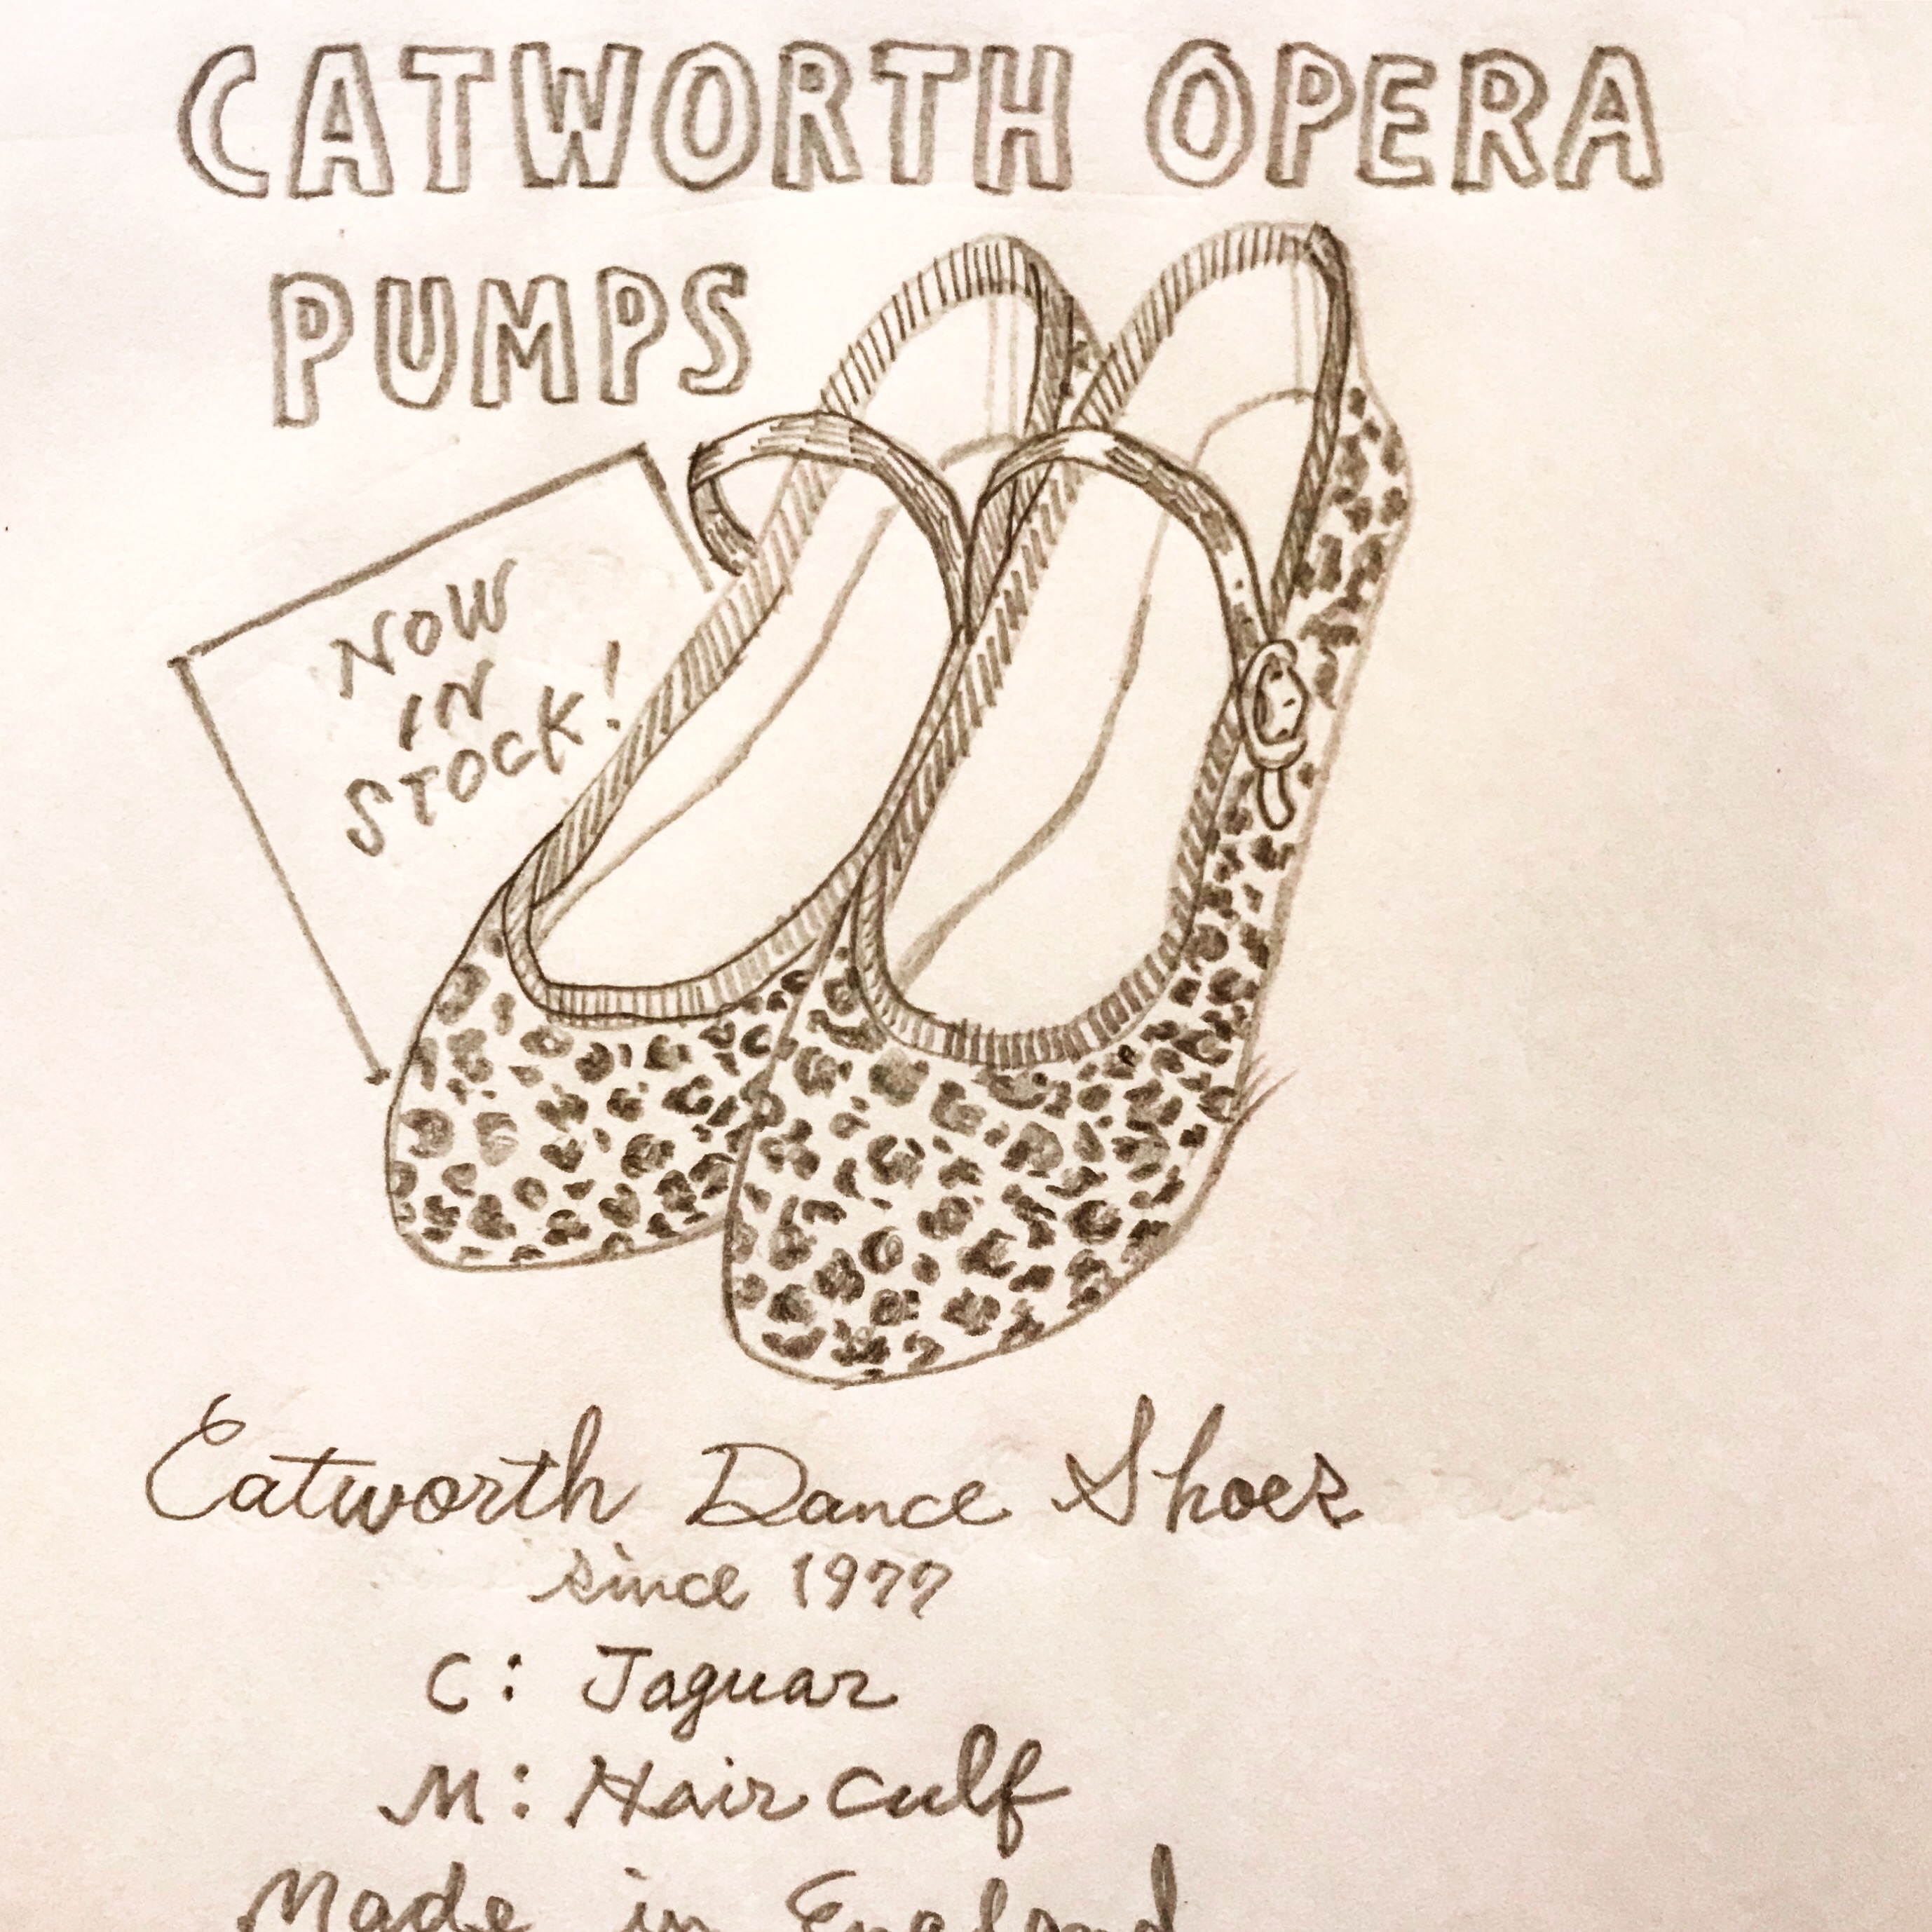 CATWORTH OPERA
PUMPS
NOW
IN
STOCK!
Catworth Dance Shoes
since 1977
C: Jaguar
M: Hair Culf
Made in England